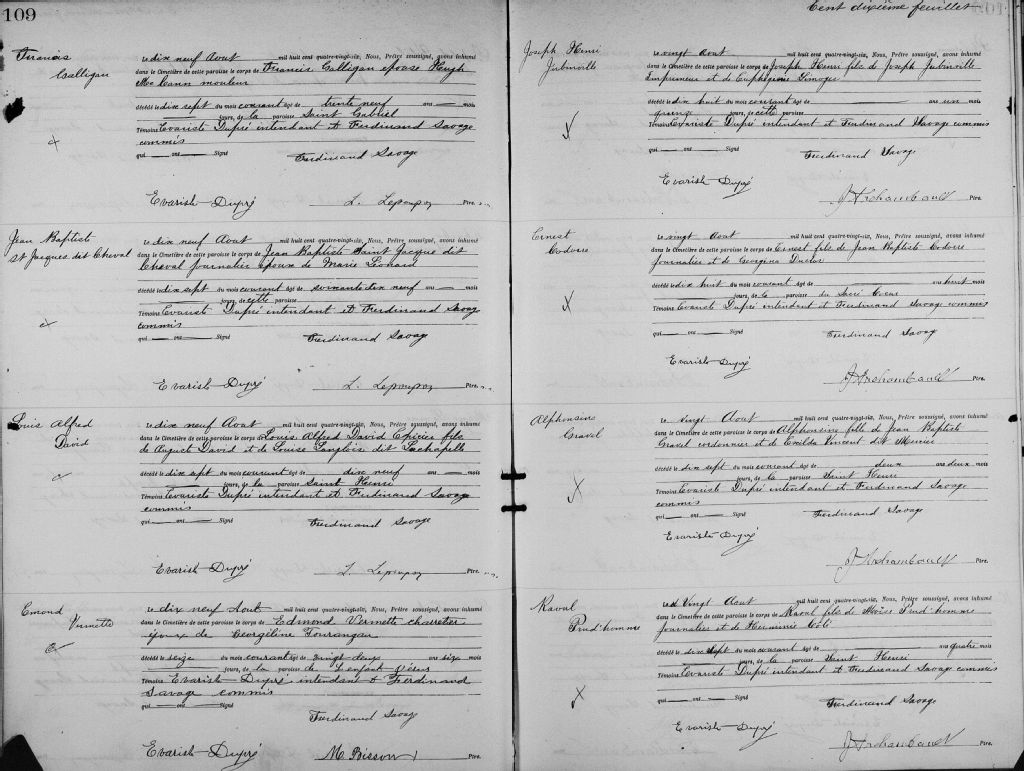 109
Francis
Galligan
le dix neuf Aout mil huit cent quatre-vingt-six, Nous, Prêtre soussigné, avons inhumé
dans le Cimetière de cette paroisse le corps de Francis Galligan epouse Hugh
Mac Cann mouleur
décédé le dix sept du mois courant âgé de trente neuf ans mois
jours, de la paroisse Saint Gabriel
Témoins Evariste Dupré intendant et Ferdinand Savage
commis
qui ont Signé
Ferdinand Savage
Evariste Dupré
L. Ptre.
Jean Baptiste
St Jacques dit Cheval
le dix neuf Aout mil huit cent quatre-vingt-six, Nous, Prêtre soussigné, avons inhumé
dans le Cimetière de cette paroisse le corps de Jean Baptiste Saint Jacques dit
Cheval journalier époux de Marie Léonard
décédé le dix sept du mois courant âgé de soixante dix neuf ans mois
jours, de cette paroisse
Témoins Evariste Dupré intendant et Ferdinand Savage
commis
qui ont Signé
Ferdinand Savage
Evariste Dupré
L. Ptre.
Louis Alfred
David
le dix neuf Aout mil huit cent quatre-vingt-six, Nous, Prêtre soussigné, avons inhumé
dans le Cimetière de cette paroisse le corps de Louis Alfred David Epicier fils
de Auguste David et de Louise Langlois dit Lachapelle
décédé le dix sept du mois courant âgé de dix neuf ans mois
jours, de la paroisse Saint Henri
Témoins Evariste Dupré intendant et Ferdinand Savage
commis
qui ont Signé
Ferdinand Savage
Evariste Dupré
L. Ptre.
Emond
Vernette
le dix neuf Aout mil huit cent quatre-vingt-six, Nous, Prêtre soussigné, avons inhumé
dans le Cimetière de cette paroisse le corps de Edmond Vernette charretier
époux de Georgéline Tourangeau
décédé le seize du mois courant âgé de vingt deux ans six mois
jours, de la paroisse de l'enfant Jésus
Témoins Evariste Dupré intendant et Ferdinand
Savage commis
qui ont Signé
Ferdinand Savage
Evariste Dupré
M. Bisson Ptre.
Cent dixième feuillet
Joseph Henri
Jubinville
le vingt Aout mil huit cent quatre-vingt-six, Nous, Prêtre soussigné, avons inhumé
dans le Cimetière de cette paroisse le corps de Joseph Henri fils de Joseph Jubinville
Emprimeur et de Euphégénie Limoges
décédé le dix huit du mois courant âgé de ans un mois
quinze jours, de cette paroisse
Témoins Evariste Dupré intendant et Ferdinand Savage commis
qui ont Signé
Ferdinand Savage
Evariste Dupré
J Archambault Ptre.
Ernest
Coderre
le vingt Aout mil huit cent quatre-vingt-six, Nous, Prêtre soussigné, avons inhumé
dans le Cimetière de cette paroisse le corps de Ernest fils de Jean Baptiste Coderre
Journalier et de Georgina
décédé le dix huit du mois courant âgé de ans huit mois
jours, de la paroisse du Sacré Coeur
Témoins Evariste Dupré intendant et Ferdinand Savage commis
qui ont Signé
Ferdinand Savage
Evariste Dupré
J Archambault Ptre.
Alphonsine
Gravel
le vingt Aout mil huit cent quatre-vingt-six, Nous, Prêtre soussigné, avons inhumé
dans le Cimetière de cette paroisse le corps de Alphonsine fille de Jean Baptiste
Gravel cordonnier et de Exilda Vincent dit
décédé le dix sept du mois courant âgé de deux ans deux mois
jours, de la paroisse Saint Henri
Témoins Evariste Dupré intendant et Ferdinand Savage
commis
qui ont Signé
Ferdinand Savage
Evariste Dupré
J Archambault Ptre.
Raoul
Prud'homme
le Vingt Aout mil huit cent quatre-vingt-six, Nous, Prêtre soussigné, avons inhumé
dans le Cimetière de cette paroisse le corps de Raoul fils de Moïse Prud'homme
Journalier et de Herminie Coté
décédé le dix sept du mois courant âgé de ans quatre mois
jours, de la paroisse Saint Henri
Témoins Evariste Dupré intendant et Ferdinand Savage commis
qui ont Signé
Ferdinand Savage
Evariste Dupré
J Archambault Ptre.